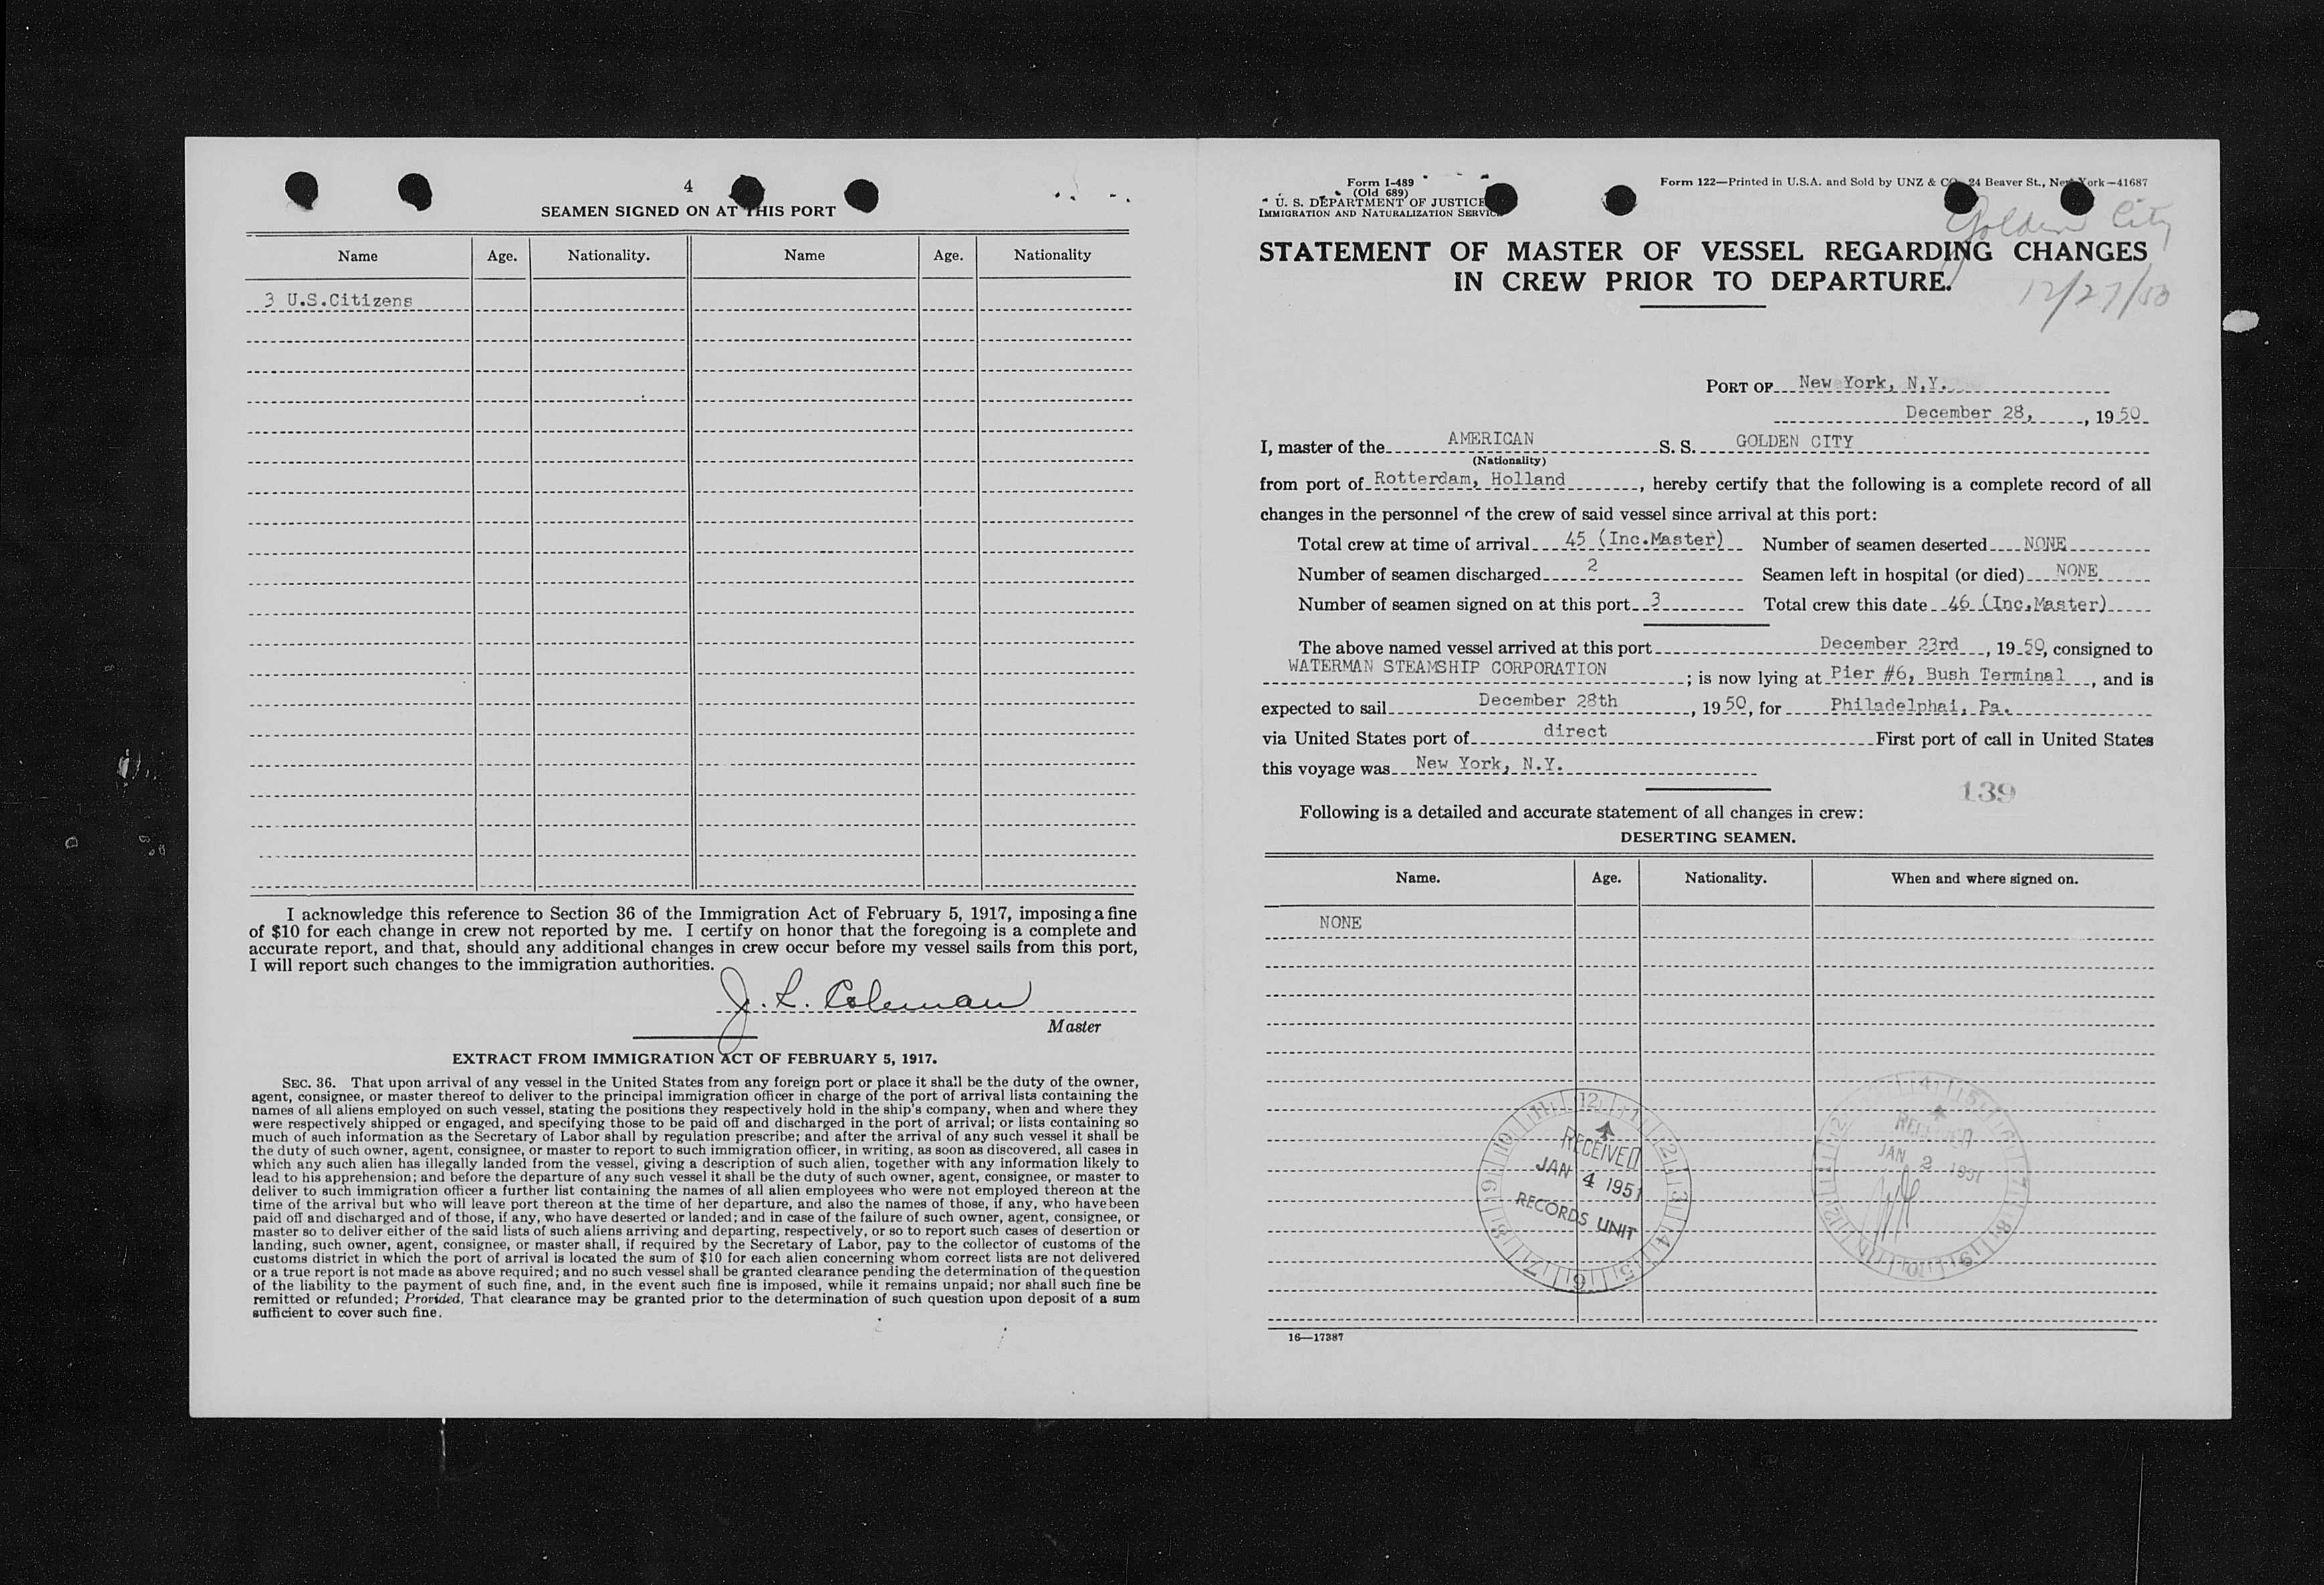 4
SEAMEN SIGNED ON AT THIS PORT
Name Age. Nationality. Name Age. Nationality
3 U.S.Citizens
I acknowledge this reference to Section 36 of the Immigration Act of February 5, 1917, imposing a fine
of $10 for each change in crew not reported by me. I certify on honor that the foregoing is a complete and
accurate report, and that, should any additional changes in crew occur before my vessel sails from this port,
I will report such changes to the immigration authorities.
J. L. Coleman
Master
EXTRACT FROM IMMIGRATION ACT OF FEBRUARY 5, 1917.
SEC. 36. That upon arrival of any vessel in the United States from any foreign port or place it shall be the duty of the owner,
agent, consignee, or master thereof to deliver to the principal immigration officer in charge of the port of arrival lists containing the
names of all aliens employed on such vessel, stating the positions they respectively hold in the ship's company, when and where they
were respectively shipped or engaged, and specifying those to be paid off and discharged in the port of arrival; or lists containing so
much of such information as the Secretary of Labor shall by regulation prescribe; and after the arrival of any such vessel it shall be
the duty of such owner, agent, consignee, or master to report to such immigration officer, in writing, as soon as discovered, all cases in
which any such alien has illegally landed from the vessel, giving a description of such alien, together with any information likely to
lead to his apprehension; and before the departure of any such vessel it shall be the duty of such owner, agent, consignee, or master to
deliver to such immigration officer a further list containing the names of all alien employees who were not employed thereon at the
time of the arrival but who will leave port thereon at the time of her departure, and also the names of those, if any, who have been
paid off and discharged and of those, if any, who have deserted or landed; and in case of the failure of such owner, agent, consignee, or
master so to deliver either of the said lists of such aliens arriving and departing, respectively, or so to report such cases of desertion or
landing, such owner, agent, consignee, or master shall, if required by the Secretary of Labor, pay to the collector of customs of the
customs district in which the port of arrival is located the sum of $10 for each alien concerning whom correct lists are not delivered
or a true report is not made as above required; and no such vessel shall be granted clearance pending the determination of the question
of the liability to the payment of such fine, and, in the event such fine is imposed, while it remains unpaid; nor shall such fine be
remitted or refunded; Provided, That clearance may be granted prior to the determination of such question upon deposit of a sum
sufficient to cover such fine.
Form I-489
(Old 689)
U. S. DEPARTMENT OF JUSTICE
IMMIGRATION AND NATURALIZATION SERVICE
Form 122—Printed in U.S.A. and Sold by UNZ & CO., 24 Beaver St., New York—41687
Golden City
STATEMENT OF MASTER OF VESSEL REGARDING CHANGES
IN CREW PRIOR TO DEPARTURE.
12/27/50
PORT OF New York, N.Y.
December 28, , 19 50
I, master of the AMERICAN S. S. GOLDEN CITY
(Nationality)
from port of Rotterdam, Holland , hereby certify that the following is a complete record of all
changes in the personnel of the crew of said vessel since arrival at this port:
Total crew at time of arrival 45 (Inc.Master) Number of seamen deserted NONE
Number of seamen discharged 2 Seamen left in hospital (or died) NONE
Number of seamen signed on at this port 3 Total crew this date 46 (Inc.Master)
The above named vessel arrived at this port December 23rd , 19 50, consigned to
WATERMAN STEAMSHIP CORPORATION ; is now lying at Pier #6, Bush Terminal , and is
expected to sail December 28th , 19 50, for Philadelphai, Pa.
via United States port of direct First port of call in United States
this voyage was New York, N.Y.
139
Following is a detailed and accurate statement of all changes in crew:
DESERTING SEAMEN.
Name. Age. Nationality. When and where signed on.
NONE
12 1 2 3 4 5 6 7 8 9 10 11
RECEIVED
JAN 4 1951
RECORDS UNIT
RECEIVED
JAN 2 1951
16—17387